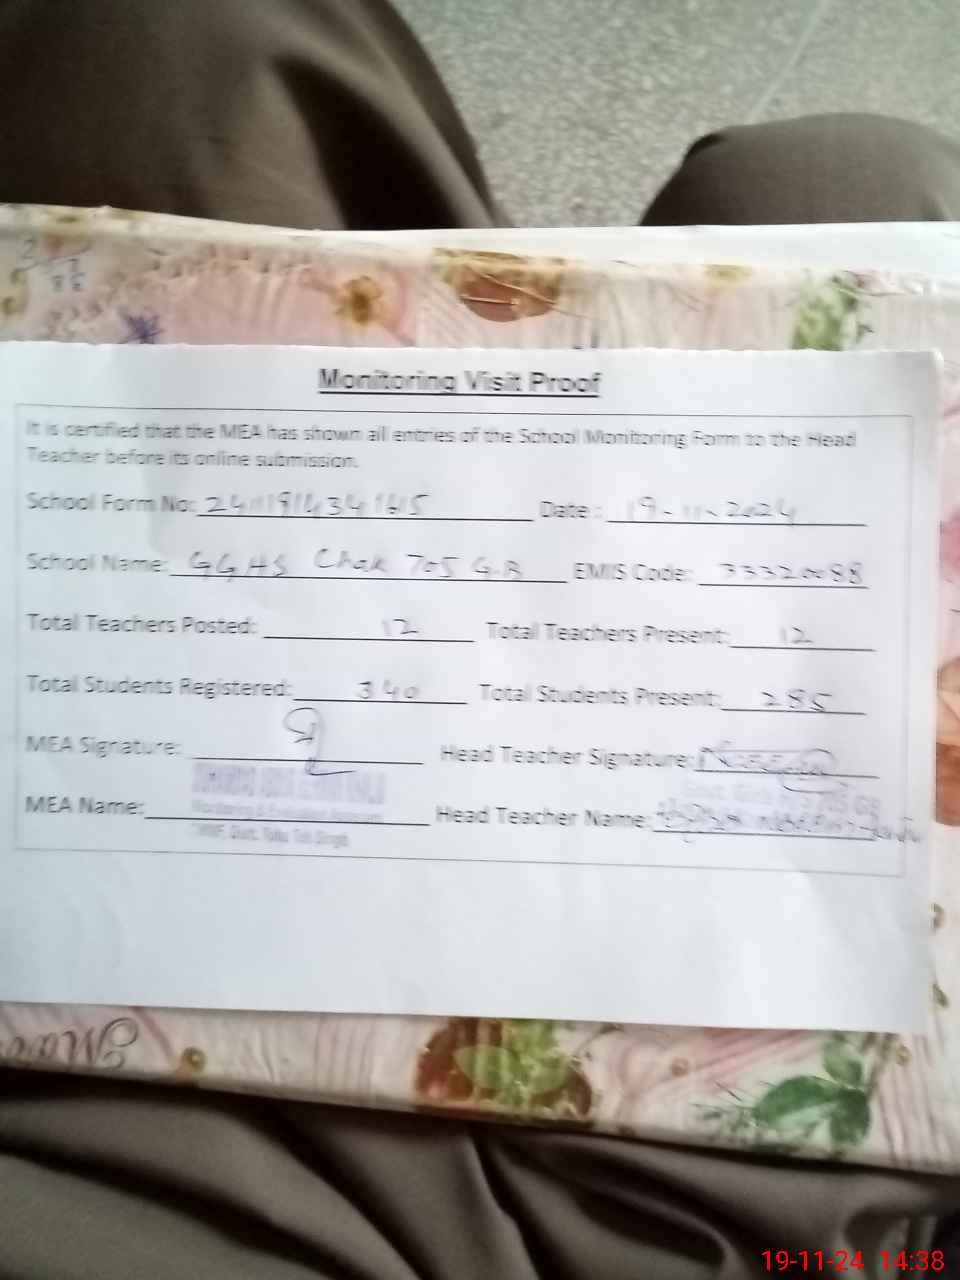 Monitoring Visit Proof
It is certified that the MEA has shown all entries of the School Monitoring Form to the Head
Teacher before its online submission.
School Form No: 24111914341615 Date: 19-11-2024
School Name: GGHS Chak 705 G.B EMIS Code: 33320088
Total Teachers Posted: 12 Total Teachers Present: 12
Total Students Registered: 340 Total Students Present: 285
MEA Signature: Head Teacher Signature:
Monitoring & Evaluation Assistant
MEA Name: Head Teacher Name:
Distt. Toba Tek Singh
19-11-24 14:38